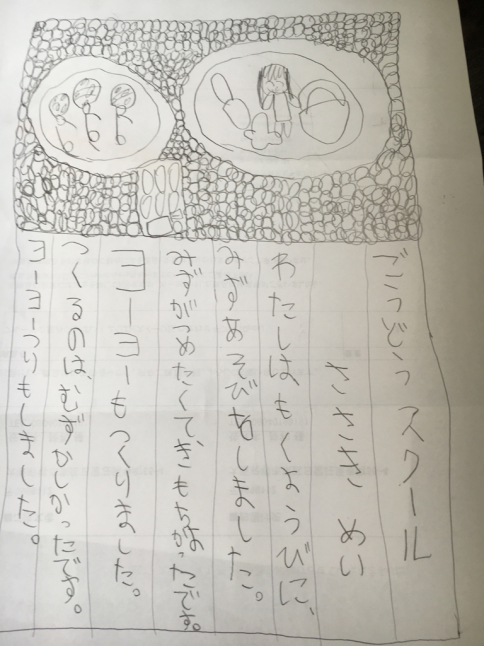 ごうどう スクール
ささき めい
わたしはもくようびに、
みずあそびもしました。
みずがつめたくてきもちよかったです。
ヨーヨーもつくりました。
つくるのは、むずかしかったです。
ヨーヨーつりもしました。